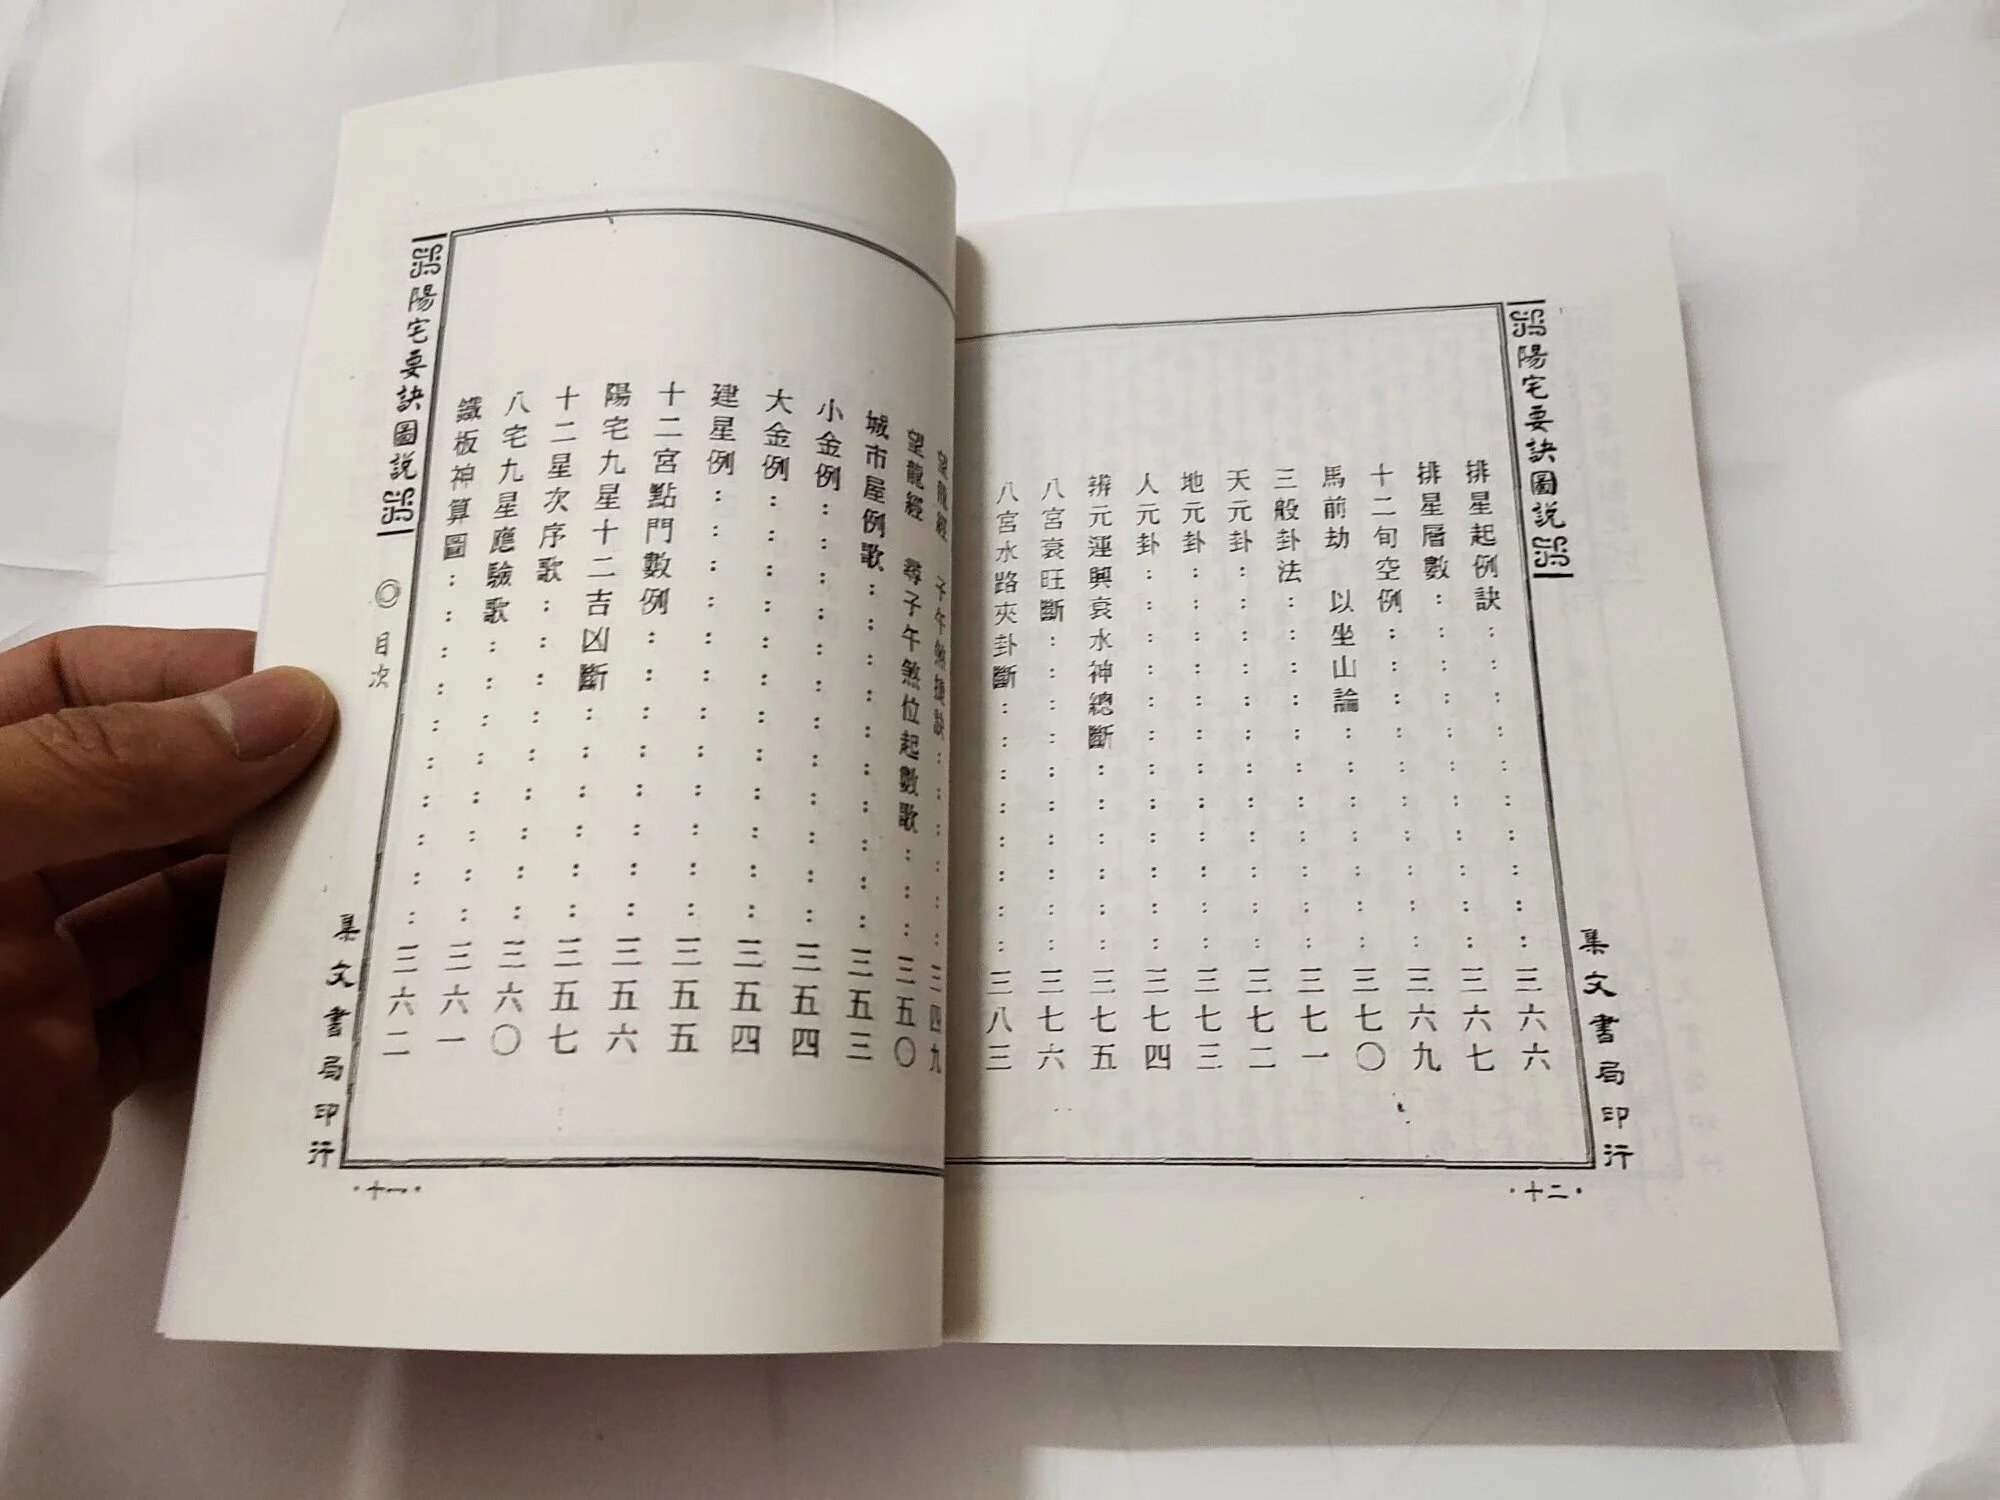 陽宅要訣圖說
◎目次
望龍經　子午煞捷訣：：：：：：三四九
望龍經　尋子午煞位起數歌：：：三五〇
城市屋例歌：：：：：：：：：：三五三
小金例：：：：：：：：：：：：三五四
大金例：：：：：：：：：：：：三五四
建星例：：：：：：：：：：：：三五五
十二宮點門數例：：：：：：：：三五六
陽宅九星十二吉凶斷：：：：：：三五七
十二星次序歌：：：：：：：：：三六〇
八宅九星應驗歌：：：：：：：：三六一
鐵板神算圖：：：：：：：：：：三六二
集文書局印行
·十一·
陽宅要訣圖說
排星起例訣：：：：：：：：：：三六六
排星層數：：：：：：：：：：：三六七
十二旬空例：：：：：：：：：：三六九
馬前劫　以坐山論：：：：：：：三七〇
三般卦法：：：：：：：：：：：三七一
天元卦：：：：：：：：：：：：三七二
地元卦：：：：：：：：：：：：三七三
人元卦：：：：：：：：：：：：三七四
辨元運興衰水神總斷：：：：：：三七五
八宮衰旺斷：：：：：：：：：：三七六
八宮水路夾卦斷：：：：：：：：三八三
集文書局印行
·十二·